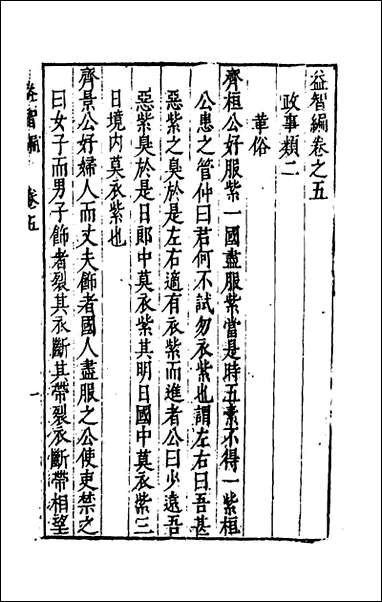 益智編卷之五
政事類二
革俗
齊桓公好服紫一國盡服紫當是時五素不得一紫桓
公患之管仲曰君何不試勿衣紫也謂左右曰吾甚
惡紫之臭於是左右適有衣紫而進者公曰少遠吾
惡紫臭於是日郎中莫衣紫其明日國中莫衣紫三
日境内莫衣紫也
齊景公好婦人而丈夫飾者國人盡服之公使吏禁之
曰女子而男子飾者裂其衣斷其帶裂衣斷帶相望
益智編 卷五 一